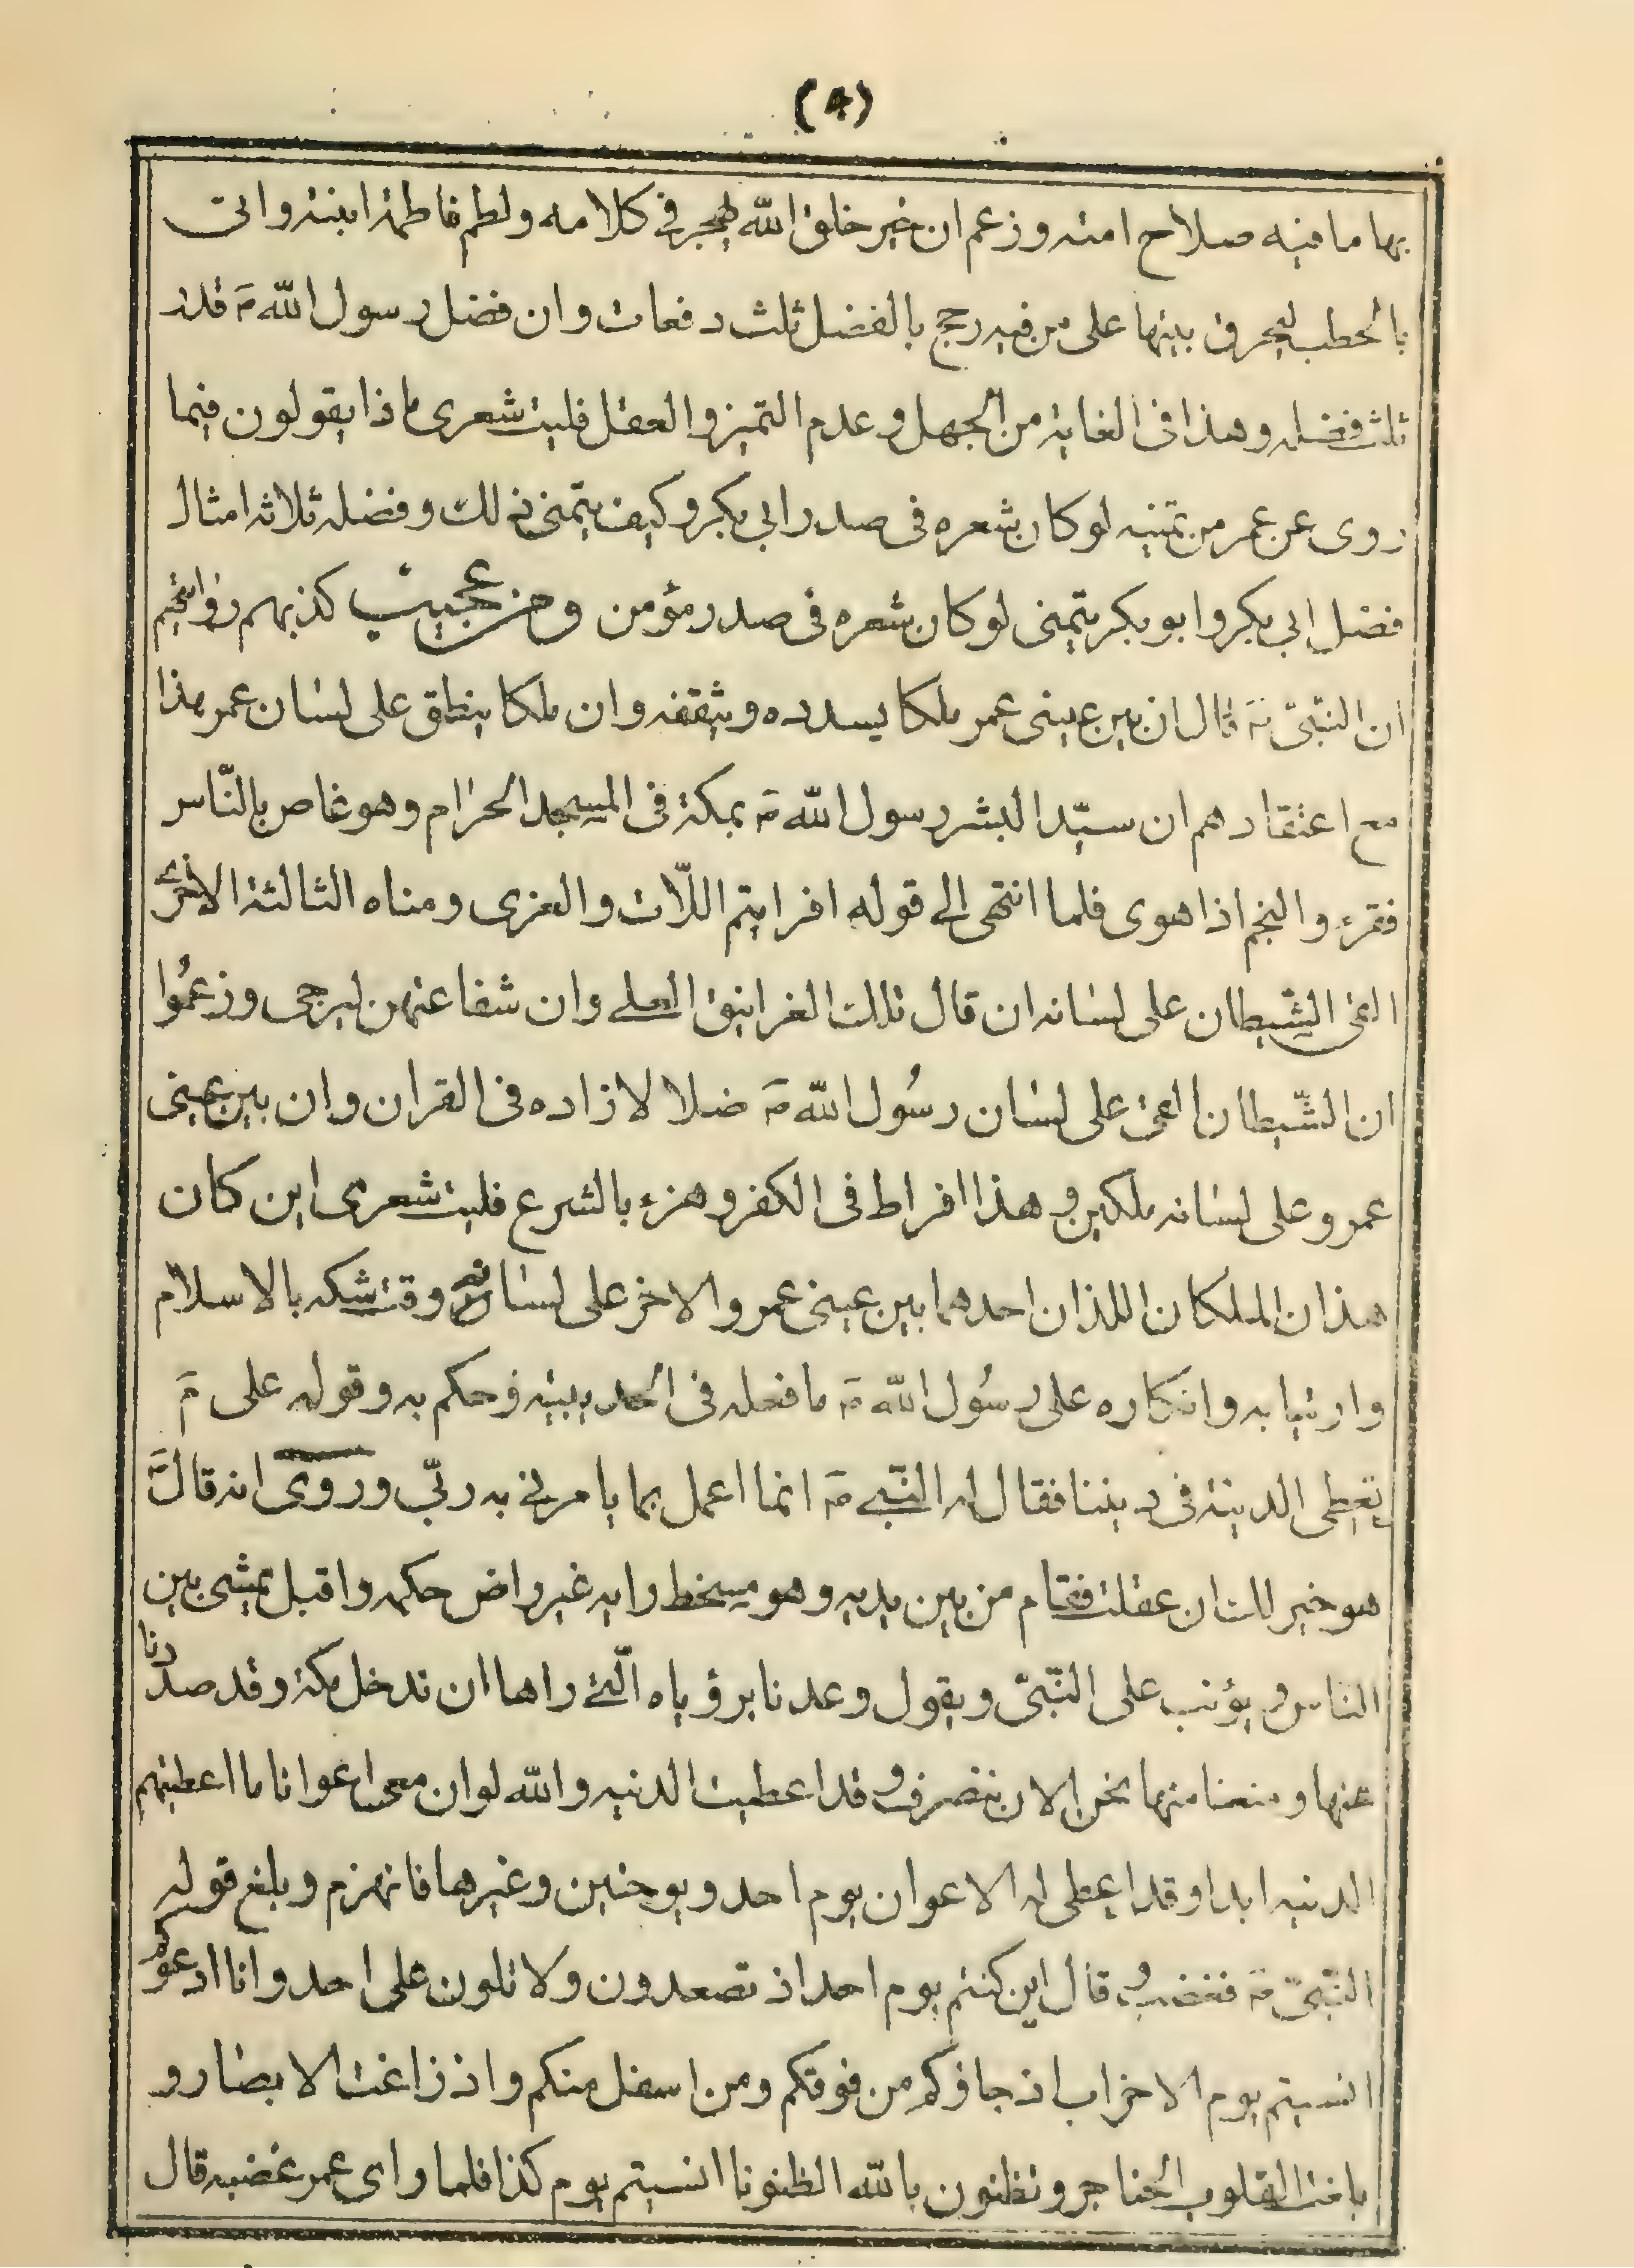 (٤)
بها ما فيه صلاح امته وزعم ان خير خلق الله يهجر في كلامه ولطم فاطمة ابنته واتى
بالحطب ليحرق بيتها على من فيه رجح بالفضل ثلث دفعات وان فضل رسول الله ص قدر
ثلث فضله وهذا فى الغاية من الجهل وعدم التميز والعقل فليت شعرى ما ذا يقولون فيما
روى عن عمر من تمنيه لو كان شعره فى صدر ابي بكر وكيف يتمنى ذلك وفضله ثلاثه امثال
فضل ابي بكر وابو بكر يتمنى لو كان شعره فى صدر مؤمن ومن عجيب كذبهم روايتهم
ان النبىّ ص قال ان بين عينى عمر ملكا يسدده ويثقفه وان ملكا ينطق على لسان عمر هذا
مع اعتقادهم ان سيّد البشر رسول الله ص بمكة فى المسجد الحرام وهو غاص بالنّاس
فقرء والنجم اذا هوى فلما انتهى الى قوله افرايتم اللّات والعزى ومناه الثالثة الاخرى
القى الشيطان على لسانه ان قال تلك الغرانيق العلى وان شفاعتهن لترجى وزعموا
ان الشّيطان القى على لسان رسول الله ص ضلالا زاده فى القران وان بين عينى
عمر وعلى لسانه ملكين وهذا افراط فى الكفر وهزء بالشرع فليت شعرى اين كان
هذان الملكان اللذان احدهما بين عينى عمر والاخر على لسانه وقت شكه بالاسلام
وارتيابه وانكاره على رسول الله ص ما فعله فى الحديبيه وحكم به وقوله على م
تعطى الدنية فى ديننا فقال له النّبى ص انما اعمل بما يامرنى به ربّي وروى انه قال
هو خير لك ان عقلت فقام من بين يديه وهو مسخط رايه غير راض حكمه واقبل يمشى بين
الناس ويؤنب على النّبىّ ويقول وعدنا برؤياه الّتى راها ان ندخل مكة وقد صدّنا
عنها ومنعنا منها نحن الان ننصرف وقد اعطيت الدنيه والله لو ان معى اعوانا ما اعطيتهم
الدنيه ابدا وقد اعطى له الاعوان يوم احد ويو حنين وغيرها فانهزم وبلغ قوله
النّبىّ ص فغضب وقال اين كنتم يوم احد اذ تصعدون ولا تلون على احد وانا ادعوكم
انسيتم يوم الاحزاب اذ جاؤكم من فوقكم ومن اسفل منكم واذ زاغت الابصار و
بلغت القلوب الحناجر وتظنون بالله الظنونا انسيتم يوم كذا فلما راى عمر غضبه قال